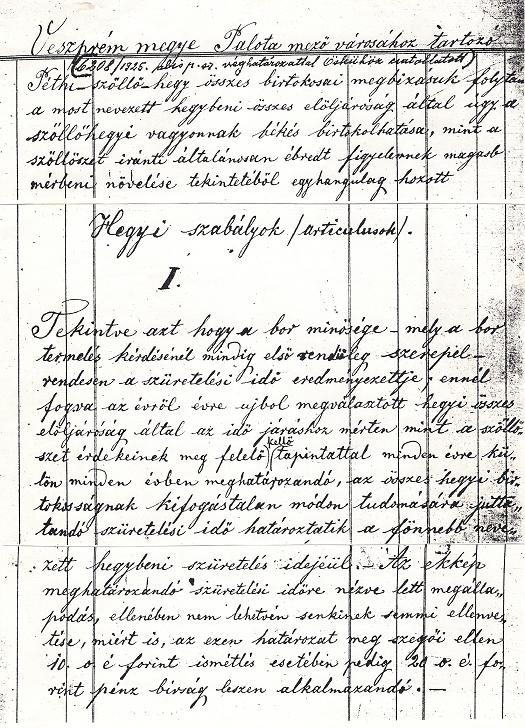 Veszprém megye Palota mező városához tartozó
(6208/1925. véghatározattal
Péthi-szőllő-hegy összes birtokosai megbizásuk folytán
a most nevezett hegybeni összes elöljáróság által ugy a
szőllőhegyi vagyonnak békés birtokolhatása, mint a
szőllőszet iránti általánosan ébredt figyelemnek magasb
mérbeni növelése tekintetéből egyhangulag hozott
Hegyi szabályok /articulusok/.
I.
Tekintve azt hogy a bor minősége – mely a bor
termelés kérdésénél mindig első rendüleg szerepel –
rendesen a szüretelési idő eredményezettje; ennél
fogva az évről évre ujból megválasztott hegyi összes
elöljáróság által az idő járáshoz mérten mint a szőllő
szet érdekeinek meg felelő kellő tapintattal minden évre kü-
lön minden évben meghatározandó, az összes hegyi bir-
tokosságnak kifogástalan módon tudomására jutta-
tandó szüretelési idő határoztatik a fönnebb neve-
zett hegybeni szüretelés idejéül. – Az ekkép
meghatározandó szüretelési időre nézve lett megálla-
podás, ellenében nem lehetvén senkinek semmi ellenve-
tése, miért is, az ezen határozat meg szegői ellen
10. o. é forint ismétlés esetében pedig 20 o. é. fo-
rint pénz birság leszen alkalmazandó. –